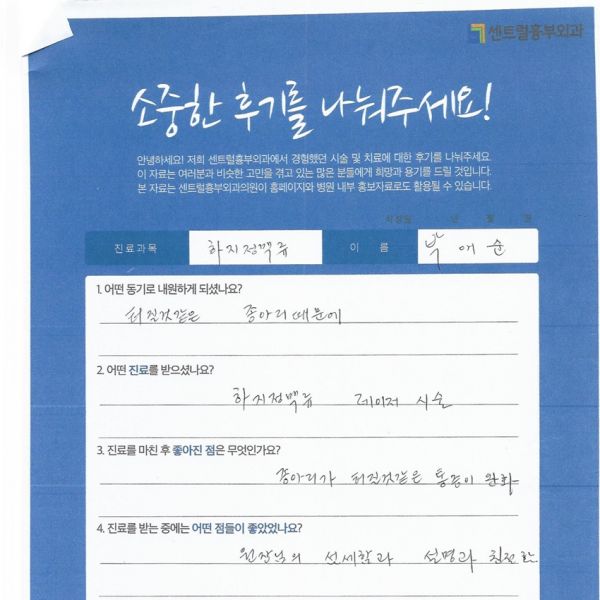 센트럴흉부외과
소중한 후기를 나눠주세요!
안녕하세요! 저희 센트럴흉부외과에서 경험했던 시술 및 치료에 대한 후기를 나눠주세요.
이 자료는 여러분과 비슷한 고민을 겪고 있는 많은 분들에게 희망과 용기를 드릴 것입니다.
본 자료는 센트럴흉부외과의원이 홈페이지와 병원 내부 홍보자료로도 활용될 수 있습니다.
작성일 년 월 일
진료과목 하지정맥류 이 름 박애순
1. 어떤 동기로 내원하게 되셨나요?
터질것같은 종아리때문에
2. 어떤 진료를 받으셨나요?
하지정맥류 레이저 시술
3. 진료를 마친 후 좋아진 점은 무엇인가요?
종아리가 터질것같은 통증이 완화
4. 진료를 받는 중에는 어떤 점들이 좋았었나요?
원장님의 섬세함과 설명과 친절함